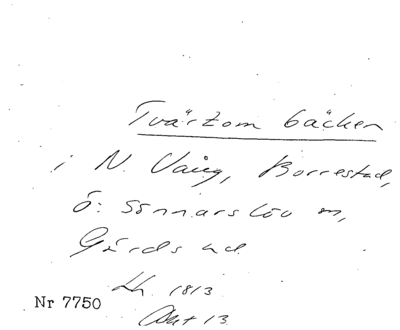 Tvärtom bäcken
i N. Vång, Borrestad,
Ö. Sönnarslöv sn,
Gärds hd.
Lh 1813
Akt 13
Nr 7750